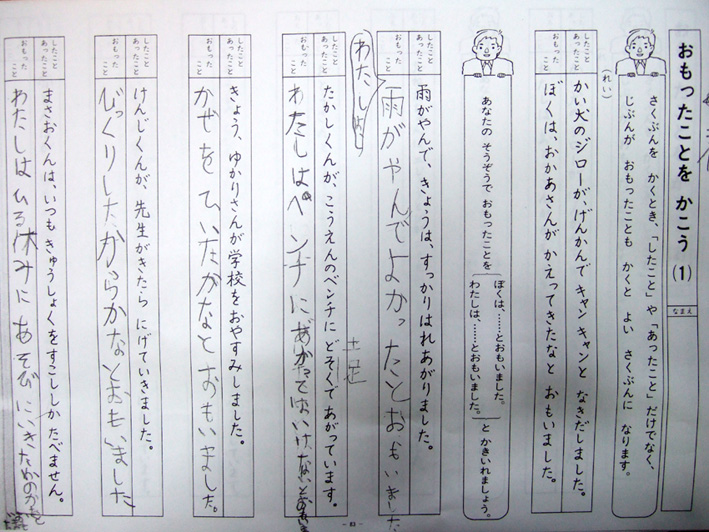 おもったことを かこう (1)
なまえ
さくぶんを かくとき、「したこと」や「あったこと」だけでなく、
じぶんが おもったことも かくと よい さくぶんに なります。
(れい)
したこと
あったこと
かい犬のジローが、げんかんで キャン キャンと なきだしました。
おもった
こと
ぼくは、おかあさんが かえってきたなと おもいました。
あなたの そうぞうで おもったことを
ぼくは、……とおもいました。
わたしは、……とおもいました。
と かきいれましょう。
したこと
あったこと
雨がやんで、きょうは、すっかりはれあがりました。
おもった
こと
わたしは、
雨がやんでよかったとおもいました
したこと
あったこと
たかしくんが、こうえんのベンチに どそくで あがっています。
土足
おもった
こと
わたしはベンチにあがってはいけないと
したこと
あったこと
きょう、ゆかりさんが学校をおやすみしました。
おもった
こと
かぜをひいたかなとおもいました。
したこと
あったこと
けんじくんが、先生がきたら にげていきました。
おもった
こと
びっくりしたからかなとおもいました
したこと
あったこと
まさおくんは、いつも きゅうしょくをすこししか たべません。
おもった
こと
わたしはひる休みにあそびにいきたいのかな
- 83 -